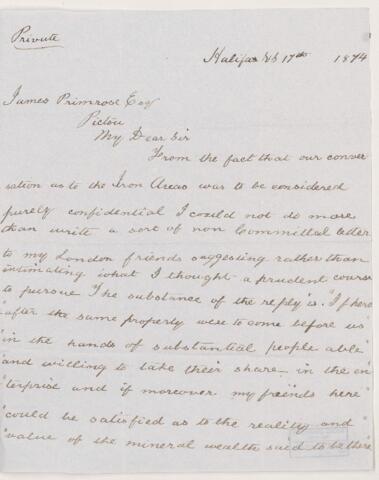 Private
Halifax Feb 17th 1874
James Primrose Esq
Pictou
My Dear Sir
From the fact that our conver
sation as to the Iron Areas was to be considered
purely confidential I could not do more
than write a sort of non Committal letter
to my London friends suggesting rather than
intimating what I thought a prudent course
to pursue The substance of the reply is. "If here
"after the same property were to come before us"
"in the hands of substantial people able"
"and willing to take their share in the en"
"terprise and if moreover my friends here"
"could be satisfied as to the reality and"
"value of the mineral wealth said to be there